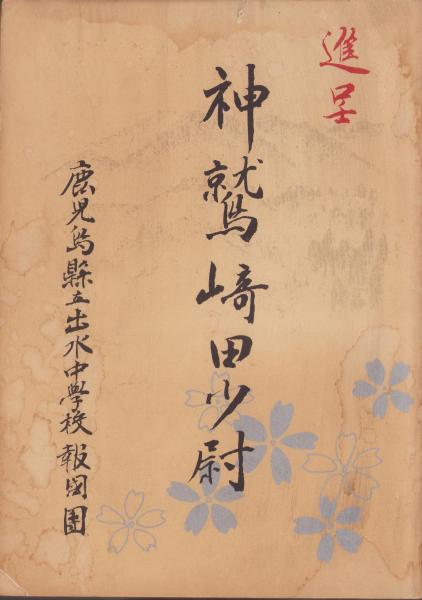 進呈
神鷲崎田少尉
鹿児島縣立出水中學校報国團